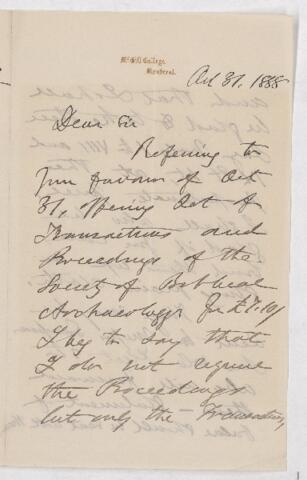 McGill College,
Montreal.
Oct 31, 1888
Dear Sir
Referring to
your favour of Oct
31, offering Set of
Transactions and
Proceedings of the
Society of Biblical
Archaeology for £7.10/
I beg to say that
I do not require
the Proceedings
but only the Transactions,